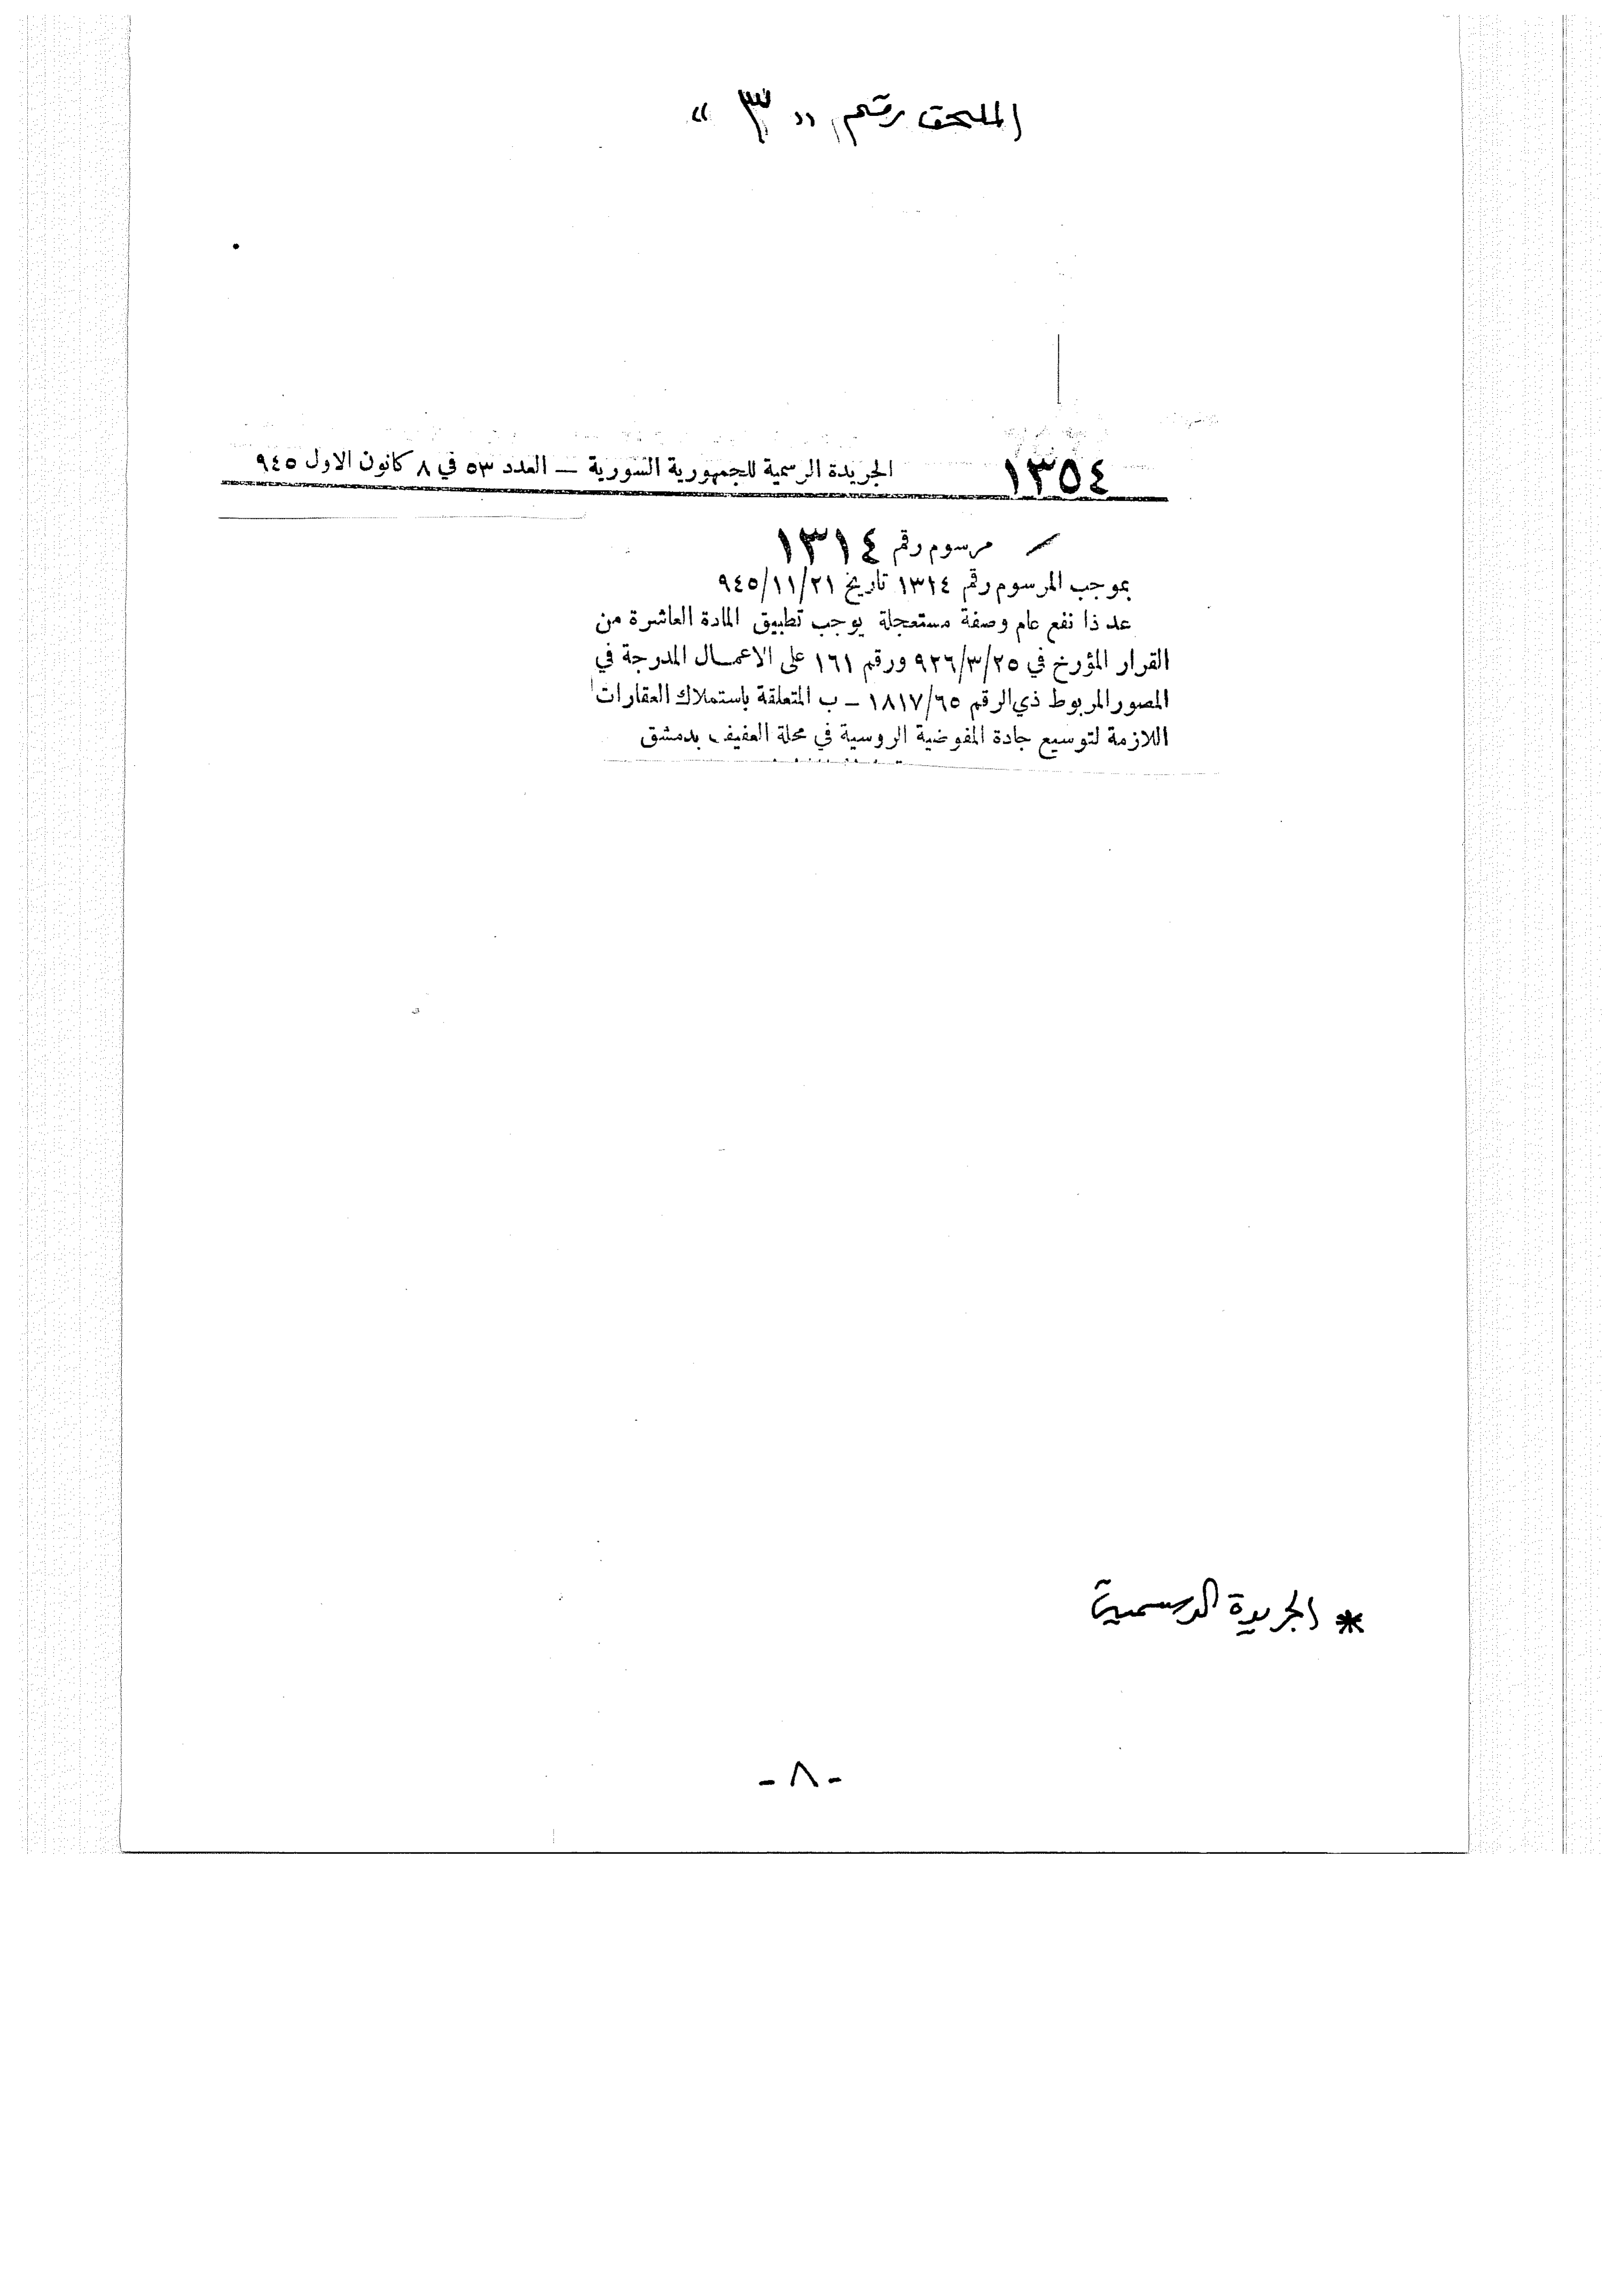 الملحق رقم « ٣ »
١٣٥٤ الجريدة الرسمية للجمهورية السورية — العدد ٥٣ في ٨ كانون الاول ٩٤٥
مرسوم رقم ١٣١٤
بموجب المرسوم رقم ١٣١٤ تاريخ ٩٤٥/١١/٢١
عد ذا نفع عام وصفة مستعجلة يوجب تطبيق المادة العاشرة من
القرار المؤرخ في ٩٢٦/٣/٢٥ ورقم ١٦١ على الاعمال المدرجة في
المصور المربوط ذي الرقم ١٨١٧/٦٥ – ب المتعلقة باستملاك العقارات
اللازمة لتوسيع جادة المفوضية الروسية في محلة العفيف بدمشق
* الجريدة الرسمية
- ٨ -